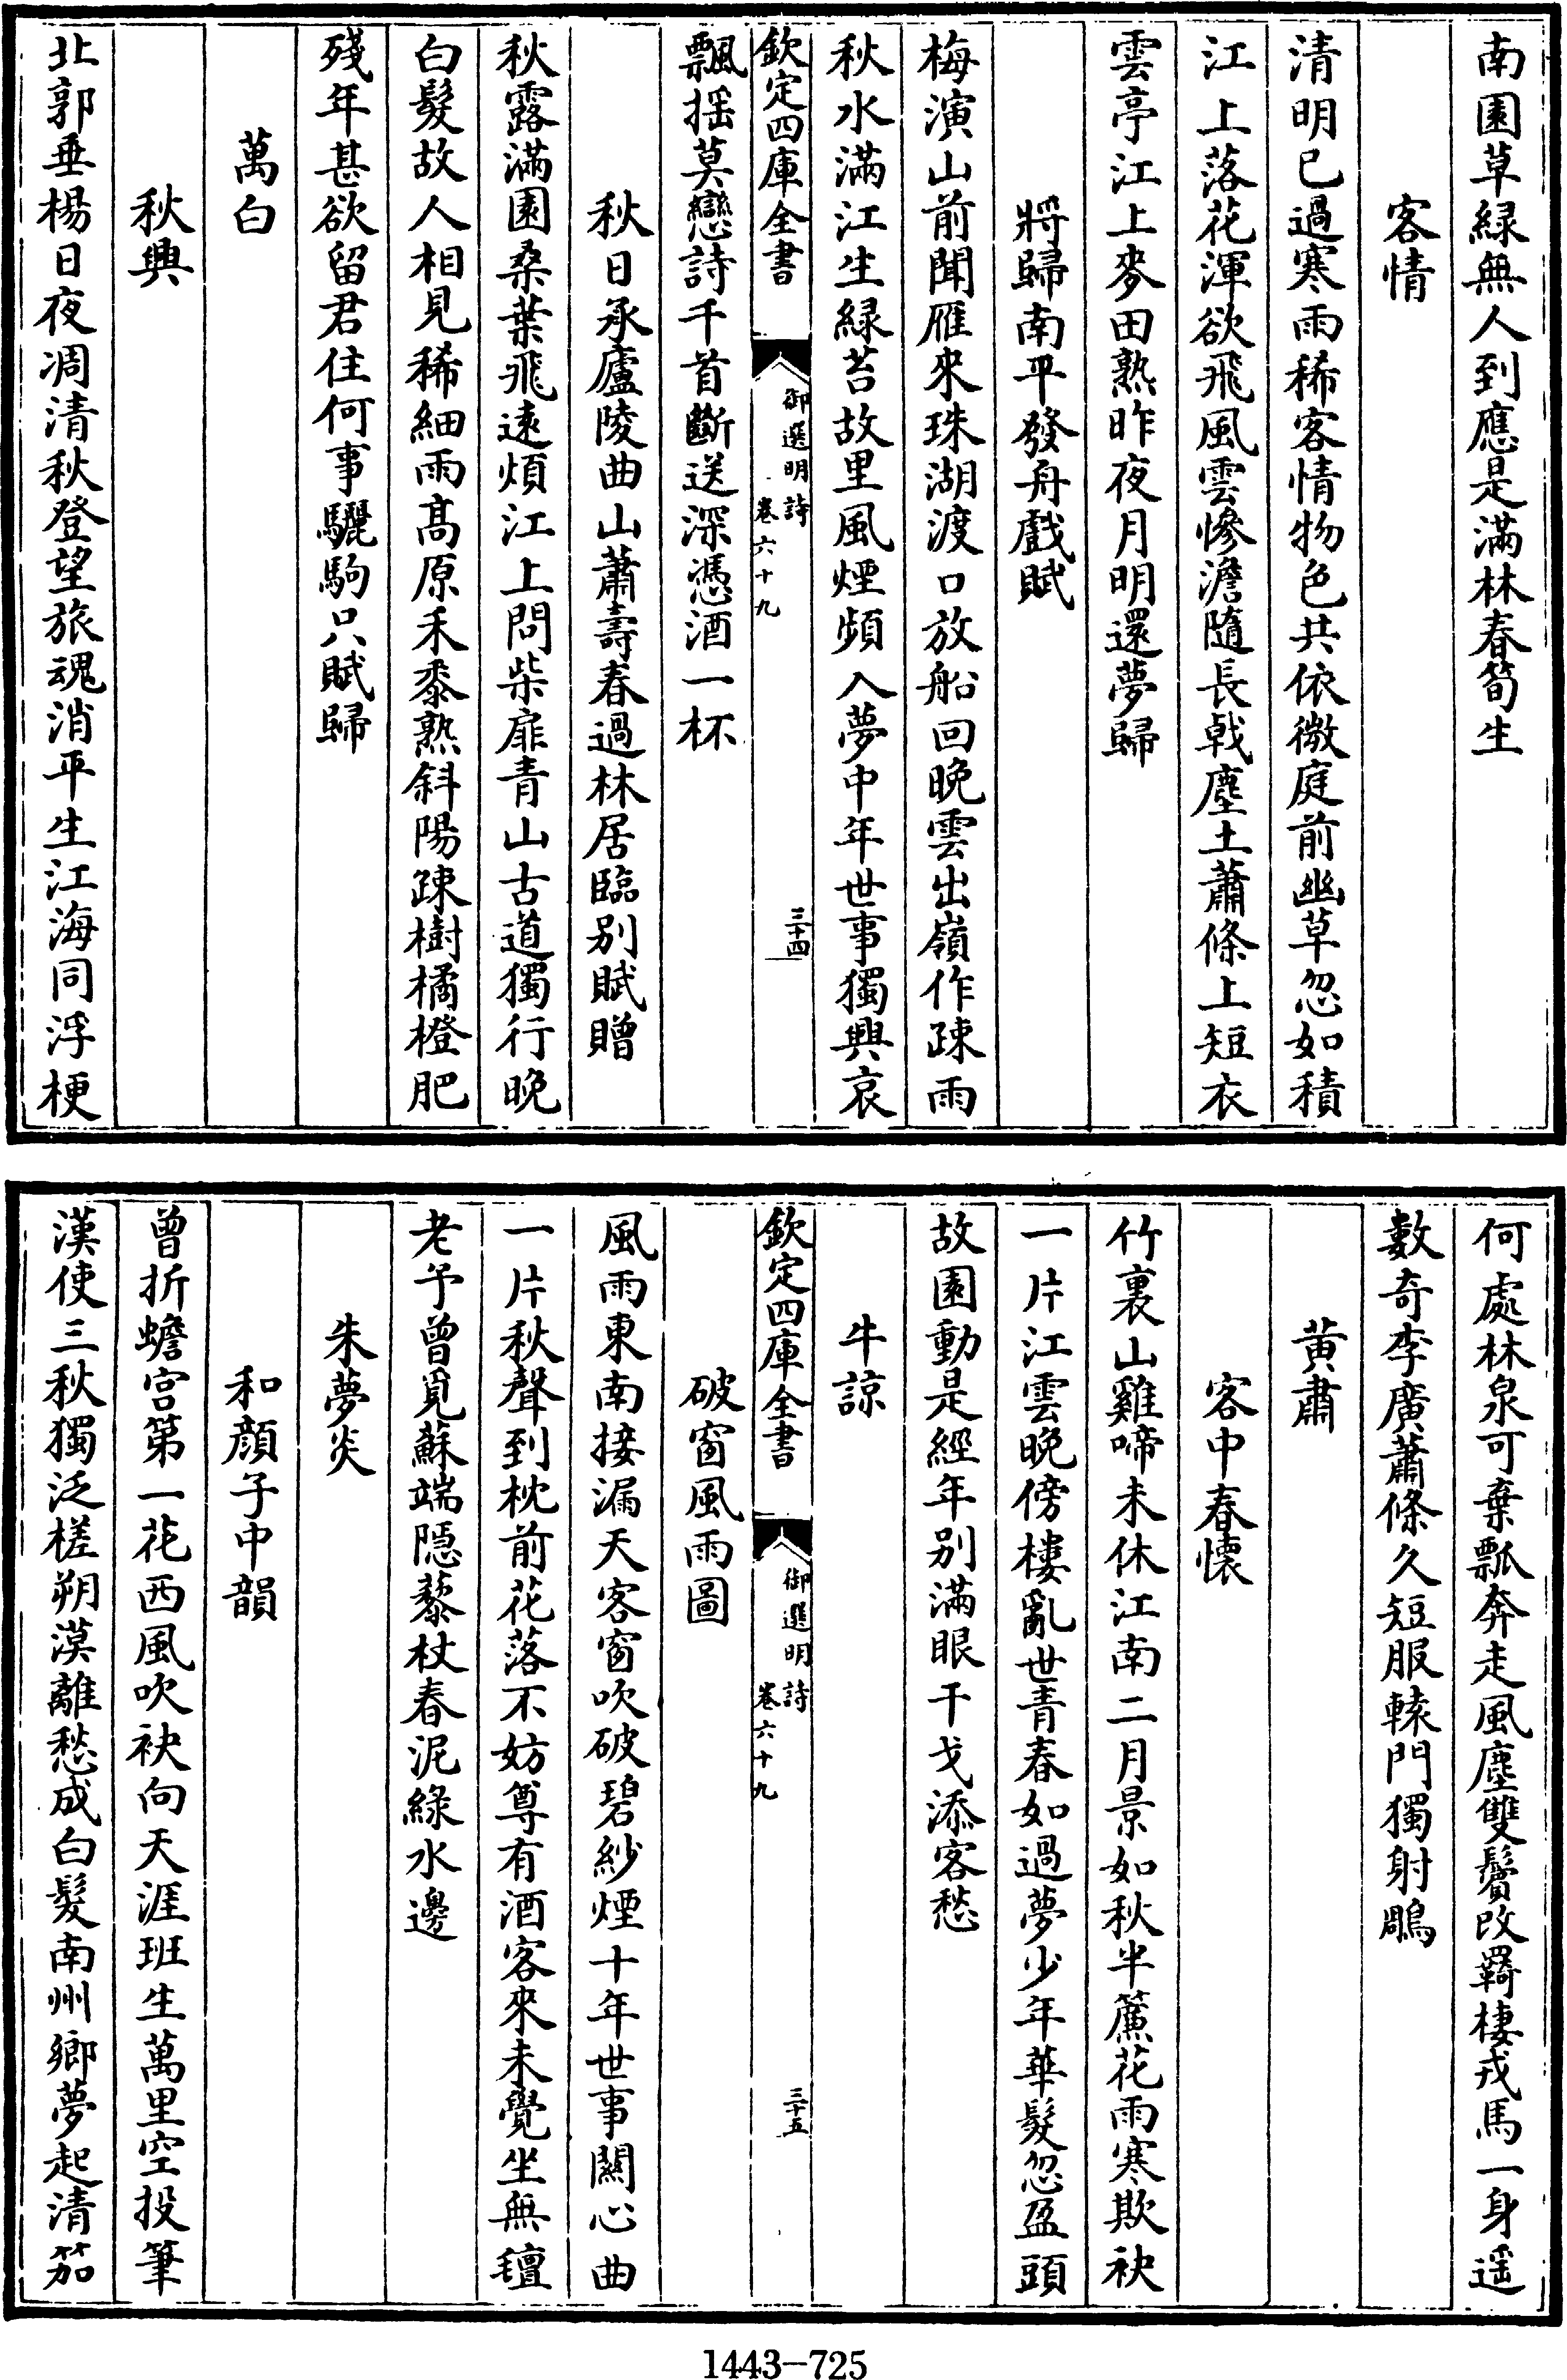 南園草緑無人到應是滿林春筍生
客情
清明已過寒雨稀客情物色共依微庭前幽草忽如積
江上落花渾欲飛風雲慘澹隨長戟塵土蕭條上短衣
雲亭江上麥田熟昨夜月明還夢歸
將歸南平發舟戲賦
梅演山前聞雁來珠湖渡口放船回晚雲出嶺作疎雨
秋水滿江生緑苔故里風煙頻入夢中年世事獨興哀
欽定四庫全書
御選明詩
卷六十九
三十四
飄揺莫戀詩千首斷送深憑酒一杯
秋日承廬陵曲山蕭壽春過林居臨别賦贈
秋露滿園桑葉飛遠煩江上問柴扉青山古道獨行晚
白髮故人相見稀細雨髙原禾黍熟斜陽疎樹橘橙肥
殘年甚欲留君住何事驪駒只賦歸
萬白
秋興
北郭垂楊日夜凋清秋登望旅魂消平生江海同浮梗
何處林泉可棄瓢奔走風塵雙鬢改羇棲戎馬一身遥
數奇李廣蕭條久短服轅門獨射鵰
黄肅
客中春懐
竹裏山雞啼未休江南二月景如秋半簾花雨寒欺袂
一片江雲晚傍樓亂世青春如過夢少年華髮忽盈頭
故園動是經年别滿眼干戈添客愁
牛諒
欽定四庫全書
御選明詩
卷六十九
三十五
破窗風雨圖
風雨東南接漏天客窗吹破碧紗煙十年世事闗心曲
一片秋聲到枕前花落不妨尊有酒客來未覺坐無氊
老予曾覓蘇端隠藜杖春泥緑水邊
朱夢炎
和顔子中韻
曾折蟾宫第一花西風吹袂向天涯班生萬里空投筆
漢使三秋獨泛槎朔漠離愁成白髮南州鄉夢起清笳
1443-725